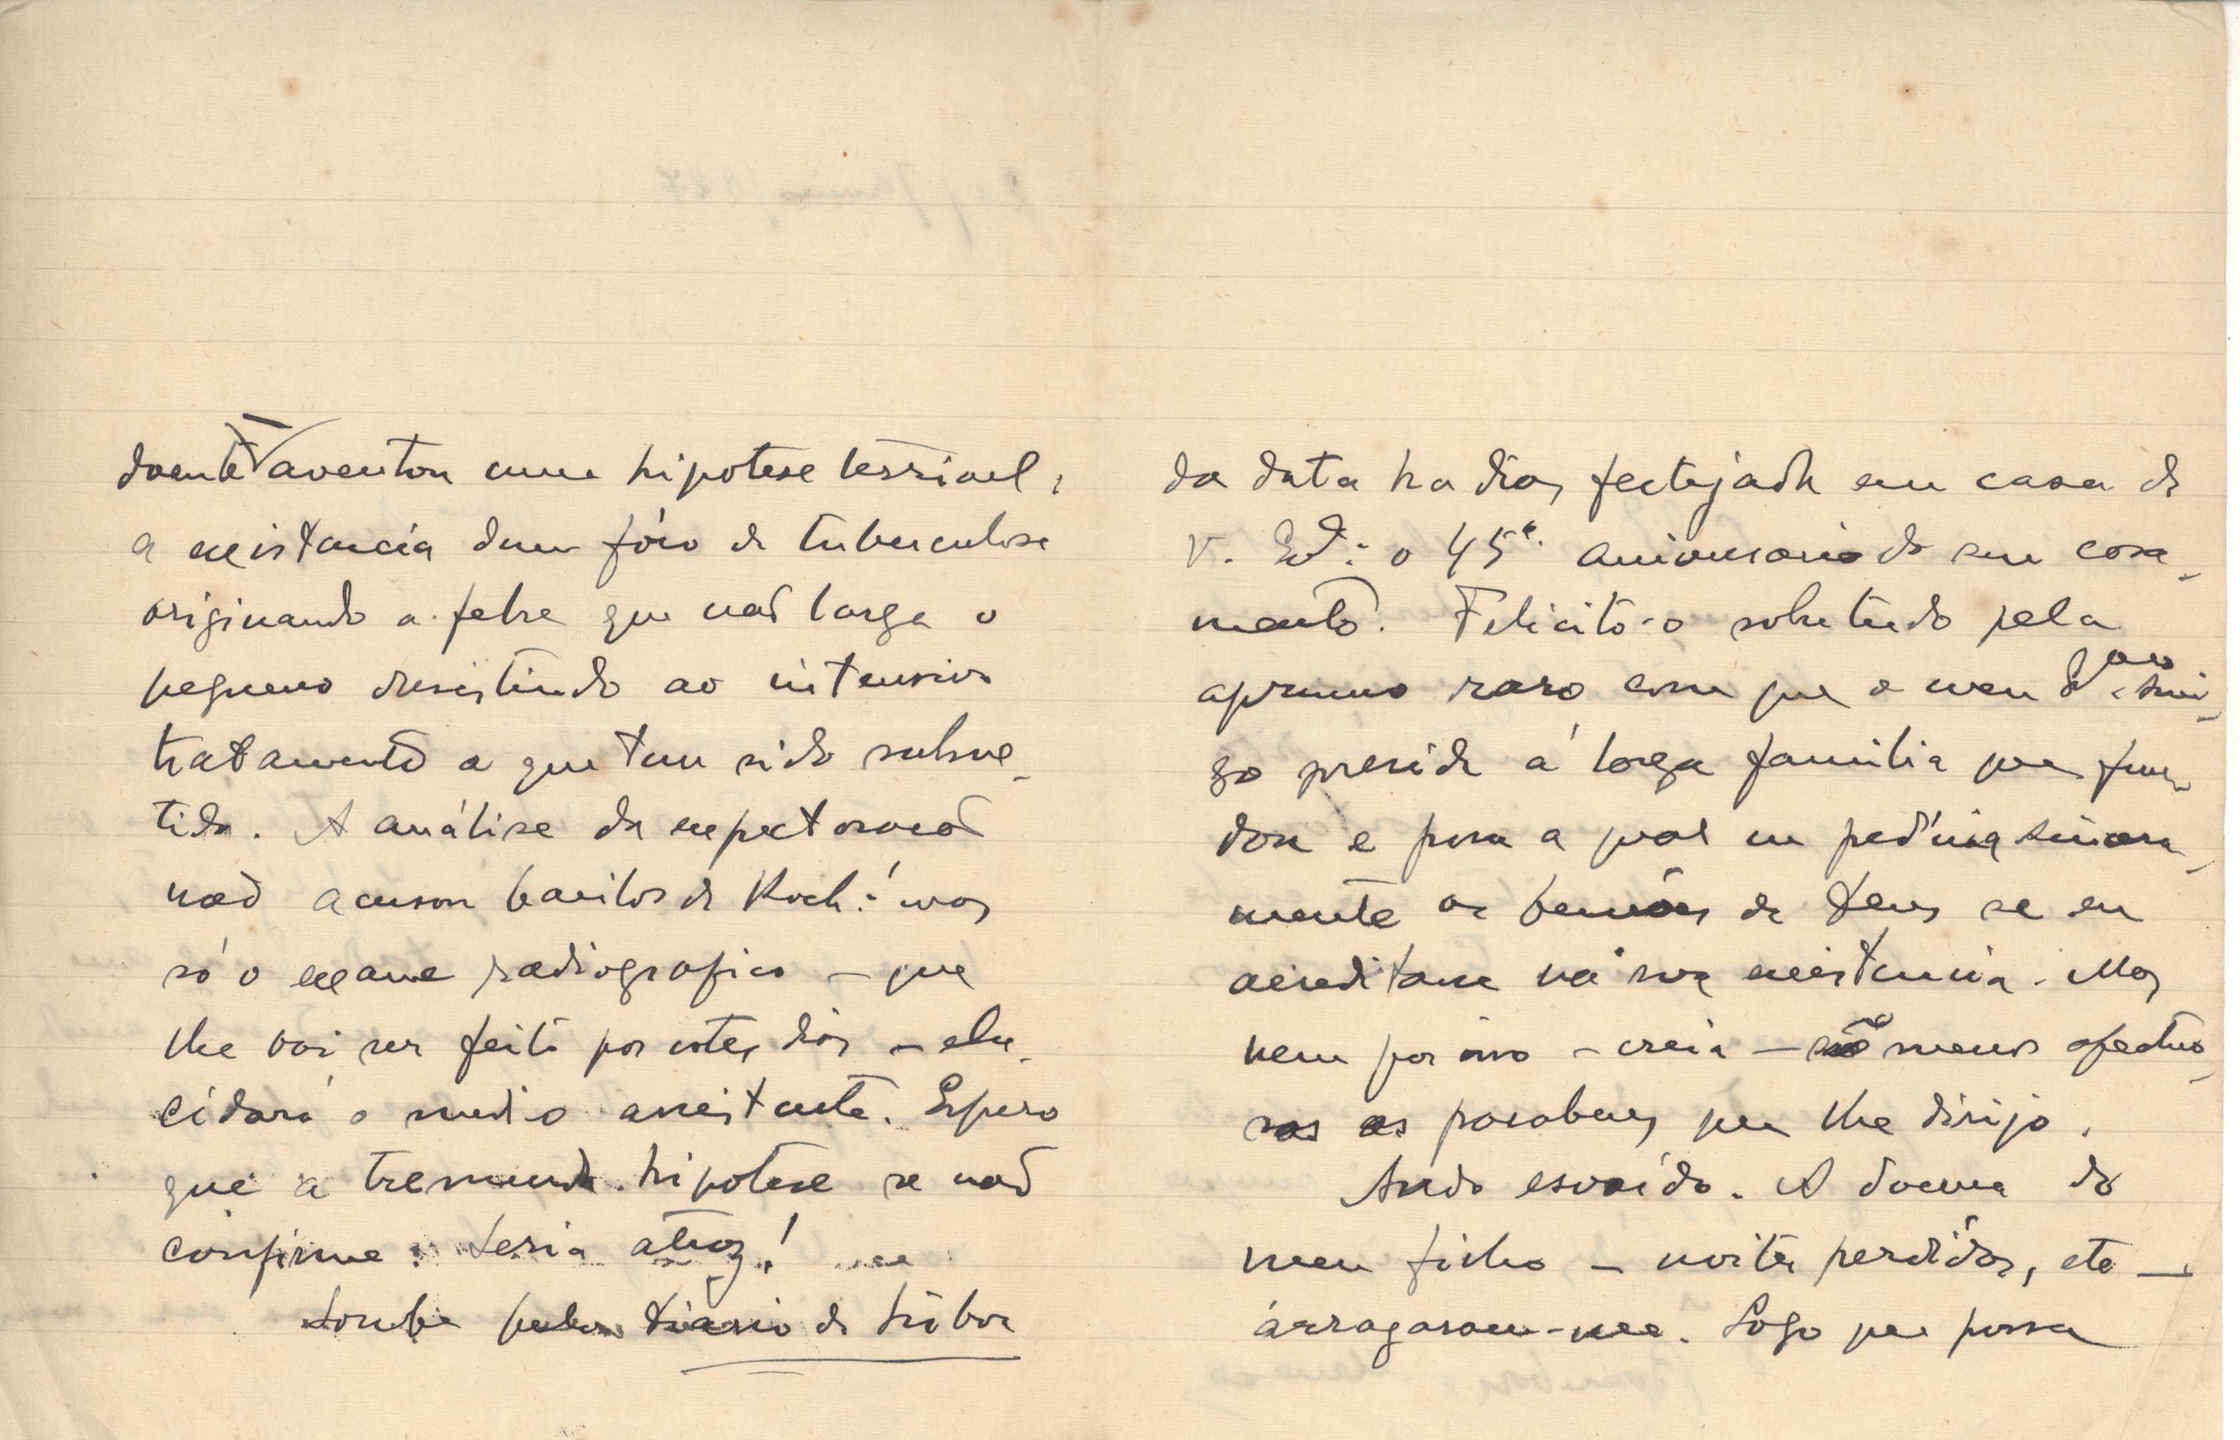 doente aventou uma hipotese terrivel:
a existencia dum fóco de tuberculose
originando a febre que não larga o
pequeno resistindo ao intensivo
tratamento a que tem sido subme-
tido. A análise da expectoração
não acusou bacilos de Koch: mas
só o exame radiografico – que
lhe vai ser feito por estes dias – elu-
cidará o medico assistente. Espero
que a tremenda hipotese se não
confirme: Seria atroz!
Soube pelo Diario de Lisboa
da data ha dias festejada em casa de
V. Ex.ª: o 45º. aniversario do seu casa-
mento. Felicito-o sobretudo pela
aprumo raro com que o meu Ami-
go preside á larga familia que fun-
dou e para a qual eu pediria sincera-
mente as bençãos de Deus se eu
acreditasse na sua existencia. Mas
nem por isso – creia – são menos afectuo-
sos os parabens que lhe dirijo.
Ando esvaído. A doença do
meu filho – noites perdidas, etc –
arrazaram-me. Logo que possa